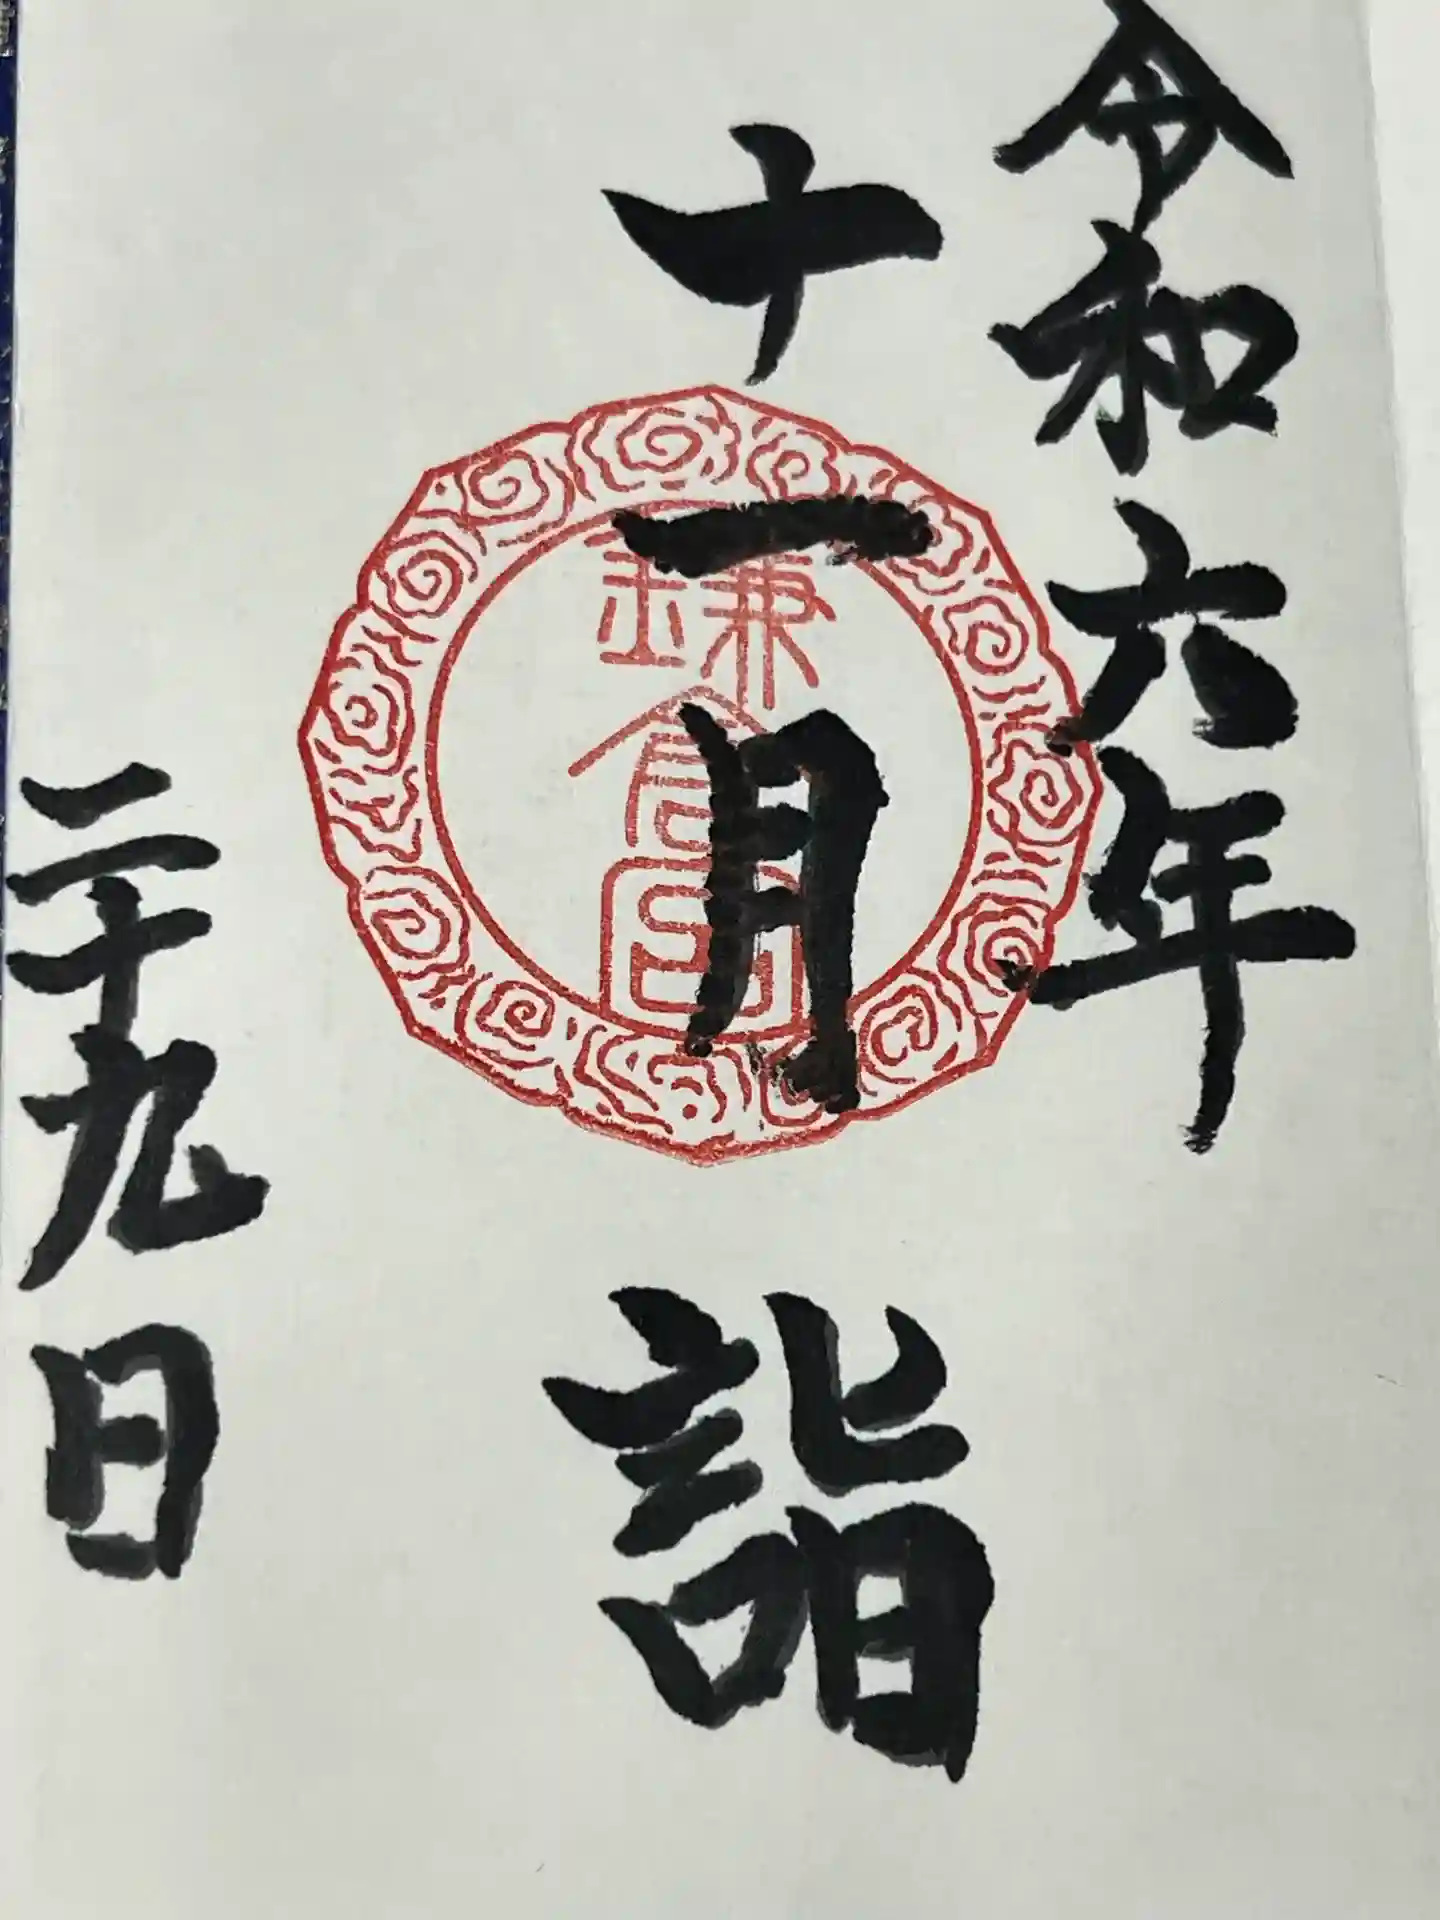 令和六年
十一月 詣
二十九日
鎌倉